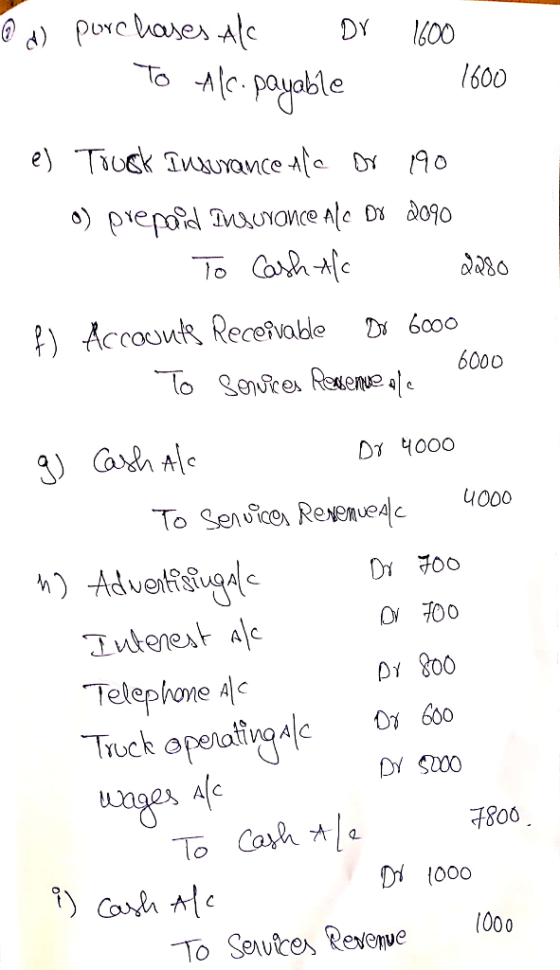 ② d) purchases A/c Dr 1600
To A/c. payable 1600
e) Truck Insurance A/c Dr 190
o) prepaid Insurance A/c Dr 2090
To Cash A/c 2280
f) Accounts Receivable Dr 6000
To Services Revenue a/c 6000
g) Cash A/c Dr 4000
To Services Revenue A/c 4000
h) Advertising A/c Dr 700
Interest A/c Dr 700
Telephone A/c Dr 800
Truck operating A/c Dr 600
wages A/c Dr 5000
To Cash A/c 7800.
i) Cash A/c Dr 1000
To Services Revenue 1000